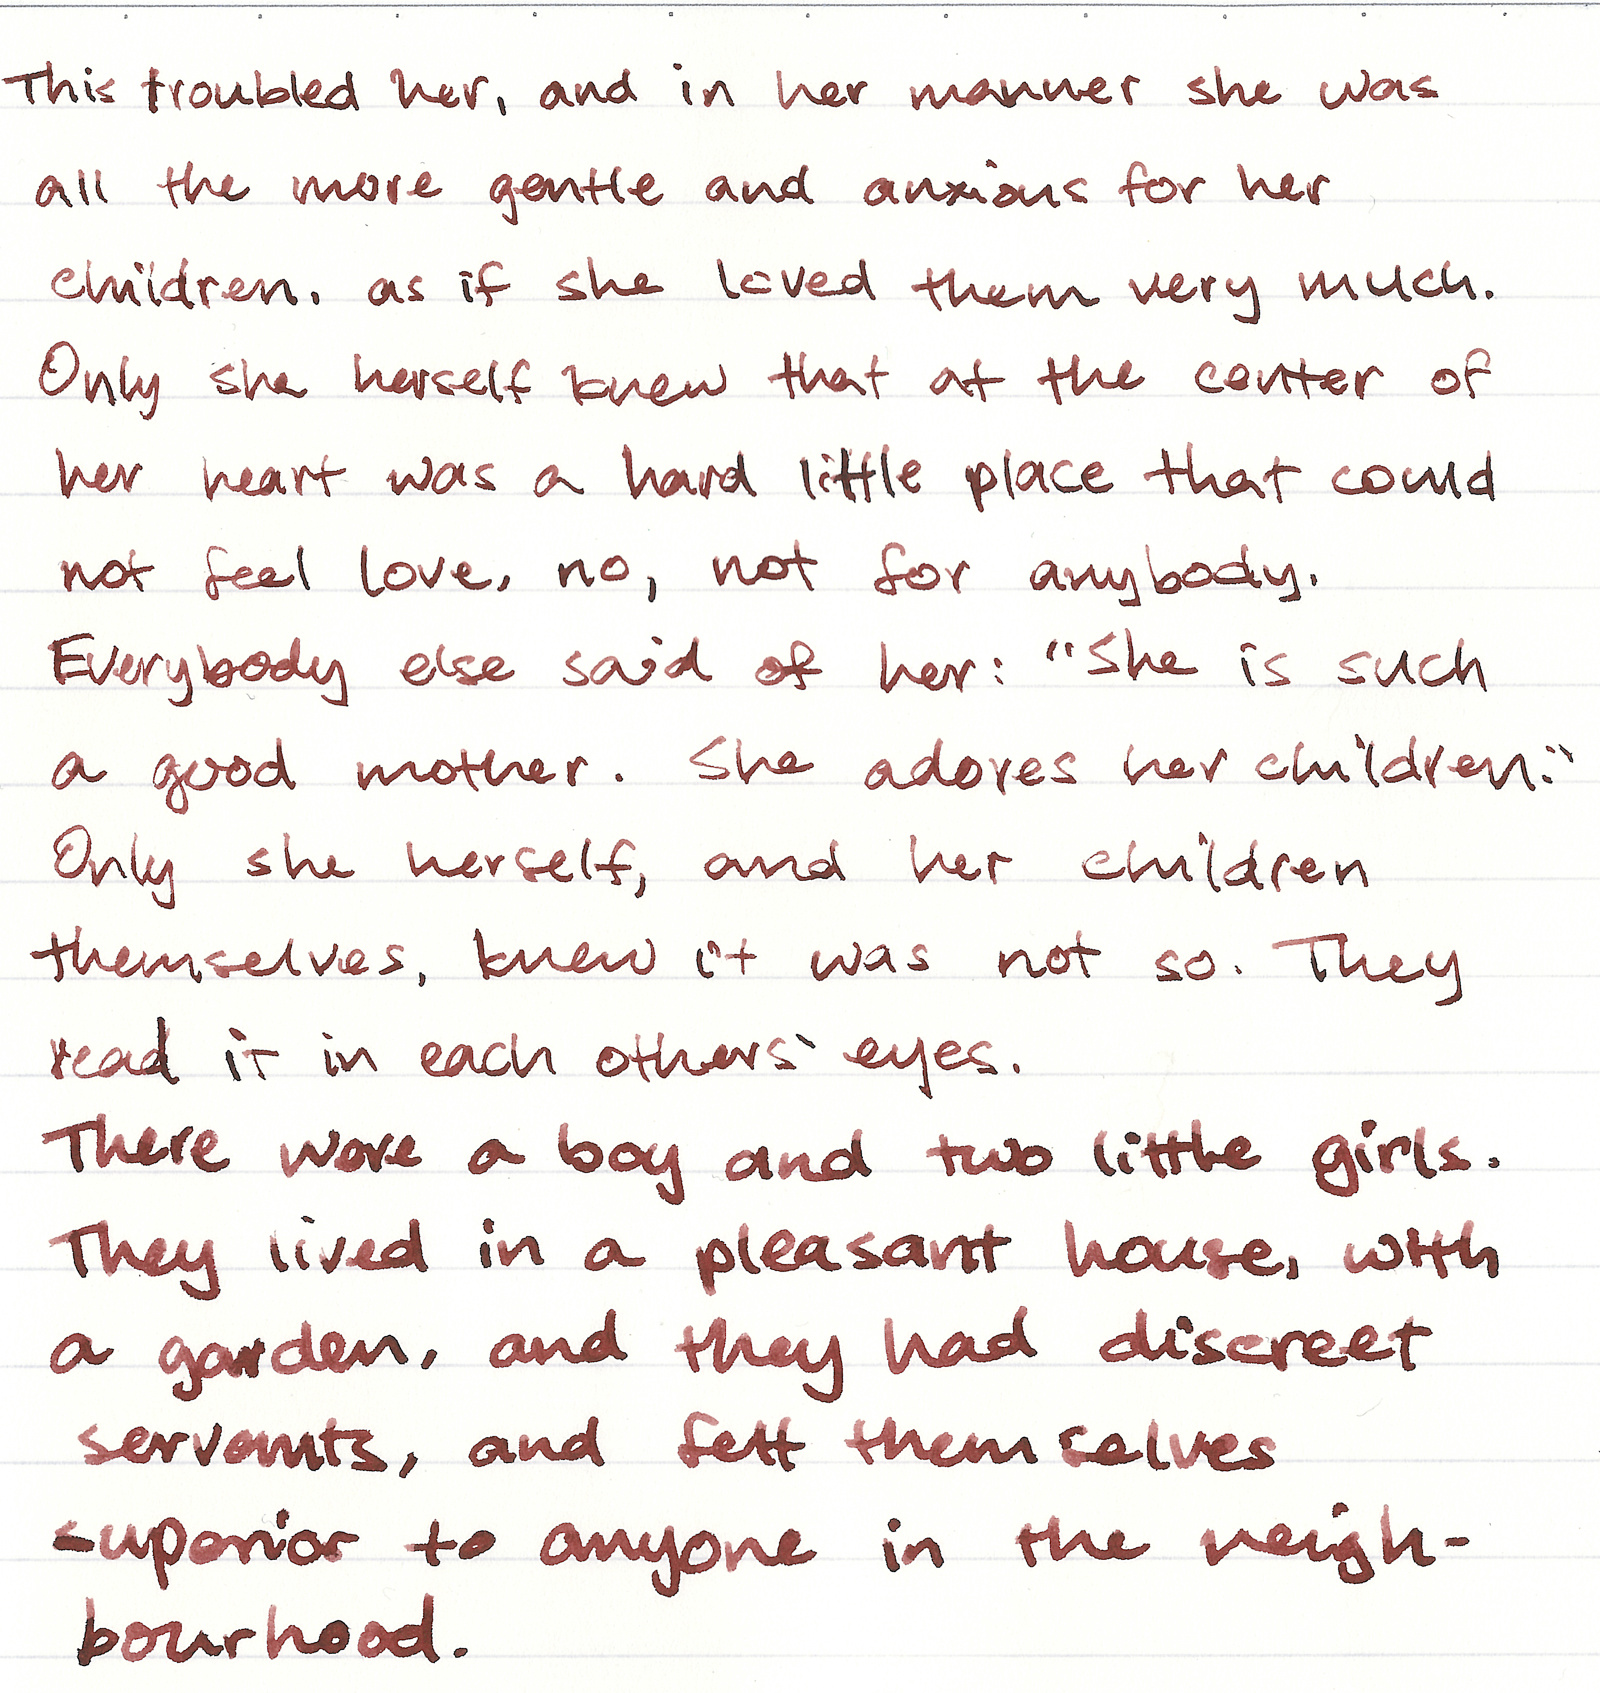 This troubled her, and in her manner she was
all the more gentle and anxious for her
children, as if she loved them very much.
Only she herself knew that at the center of
her heart was a hard little place that could
not feel love, no, not for anybody.
Everybody else said of her: "She is such
a good mother. She adores her children."
Only she herself, and her children
themselves, knew it was not so. They
read it in each others' eyes.
There were a boy and two little girls.
They lived in a pleasant house, with
a garden, and they had discreet
servants, and felt themselves
superior to anyone in the neigh-
bourhood.